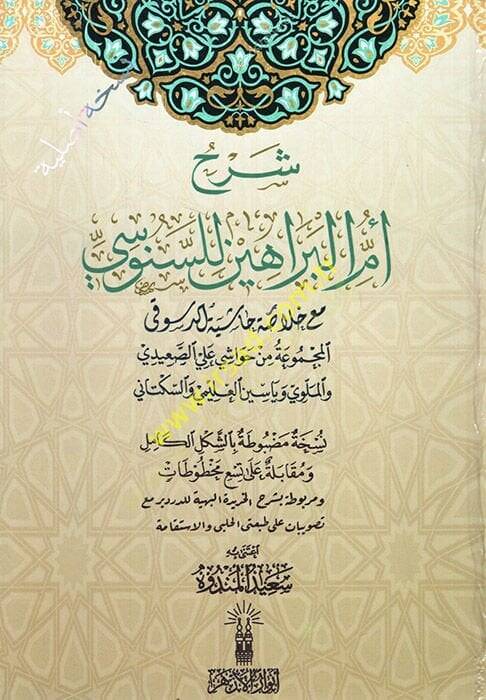 نسخة أصلية
شرح
أم البراهين للسنوسي
مع خلاصة حاشية الدسوقي
المجموعة من حواشي علي الصعيدي
والملوي وياسين العليمي والسكتاني
نسخة مضبوطة بالشكل الكامل
ومقابلة على تسع مخطوطات
ومربوطة بشرح الخريدة البهية للدردير مع
تصويبات على طبعتي الحلبي والاستقامة
اعتنى به
سعيد المندوه
أنوار الأزهر